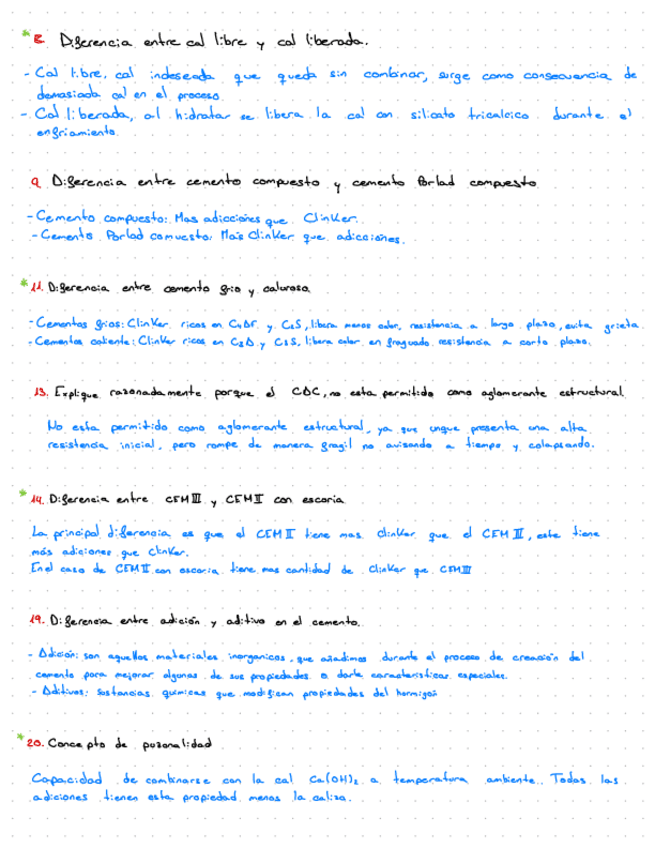 * 8 Diferencia entre cal libre y cal liberada.
- Cal libre, cal indeseada que queda sin combinar, surge como consecuencia de
demasiada cal en el proceso.
- Cal liberada, al hidratar se libera la cal con silicato tricalcico durante el
enfriamiento.
9 Diferencia entre cemento compuesto y cemento Porlad compuesto
- Cemento compuesto: Mas adicciones que Clinker.
- Cemento Porlad comuesto: Mas Clinker que adicciones.
* 11. Diferencia entre cemento frio y caluroso.
- Cementos frios: Clinker ricos en C4AF y C2S, libera menos calor, resistencia a largo plazo, evita grieta.
- Cementos caliente: Clinker ricos en C3A y C3S, libera calor en fraguado resistencia a corto plazo.
13. Explique razonadamente porque el CAC, no esta permitido como aglomerante estructural.
No esta permitido como aglomerante estructural, ya que unque presenta una alta
resistencia inicial, pero rompe de manera fragil no avisando a tiempo y colapsando.
* 14. Diferencia entre CEM III y CEM II con escoria
La principal diferencia es que el CEM II tiene mas clinker que el CEM III, este tiene
más adiciones que clinker.
En el caso de CEM II con escoria tiene mas cantidad de clinker que CEM III
19. Diferencia entre adición y aditivo en el cemento.
- Adición: son aquellos materiales inorganicos, que añadimos durante el proceso de creación del
cemento para mejorar algunas de sus propiedades o darle caracteristicas especiales.
- Aditivos: sustancias quimicas que modifican propiedades del hormigon
* 20. Concepto de puzonalidad
Capacidad de combinarse con la cal Ca(OH)2 a temperatura ambiente. Todas las
adiciones tienen esta propiedad menos la caliza.